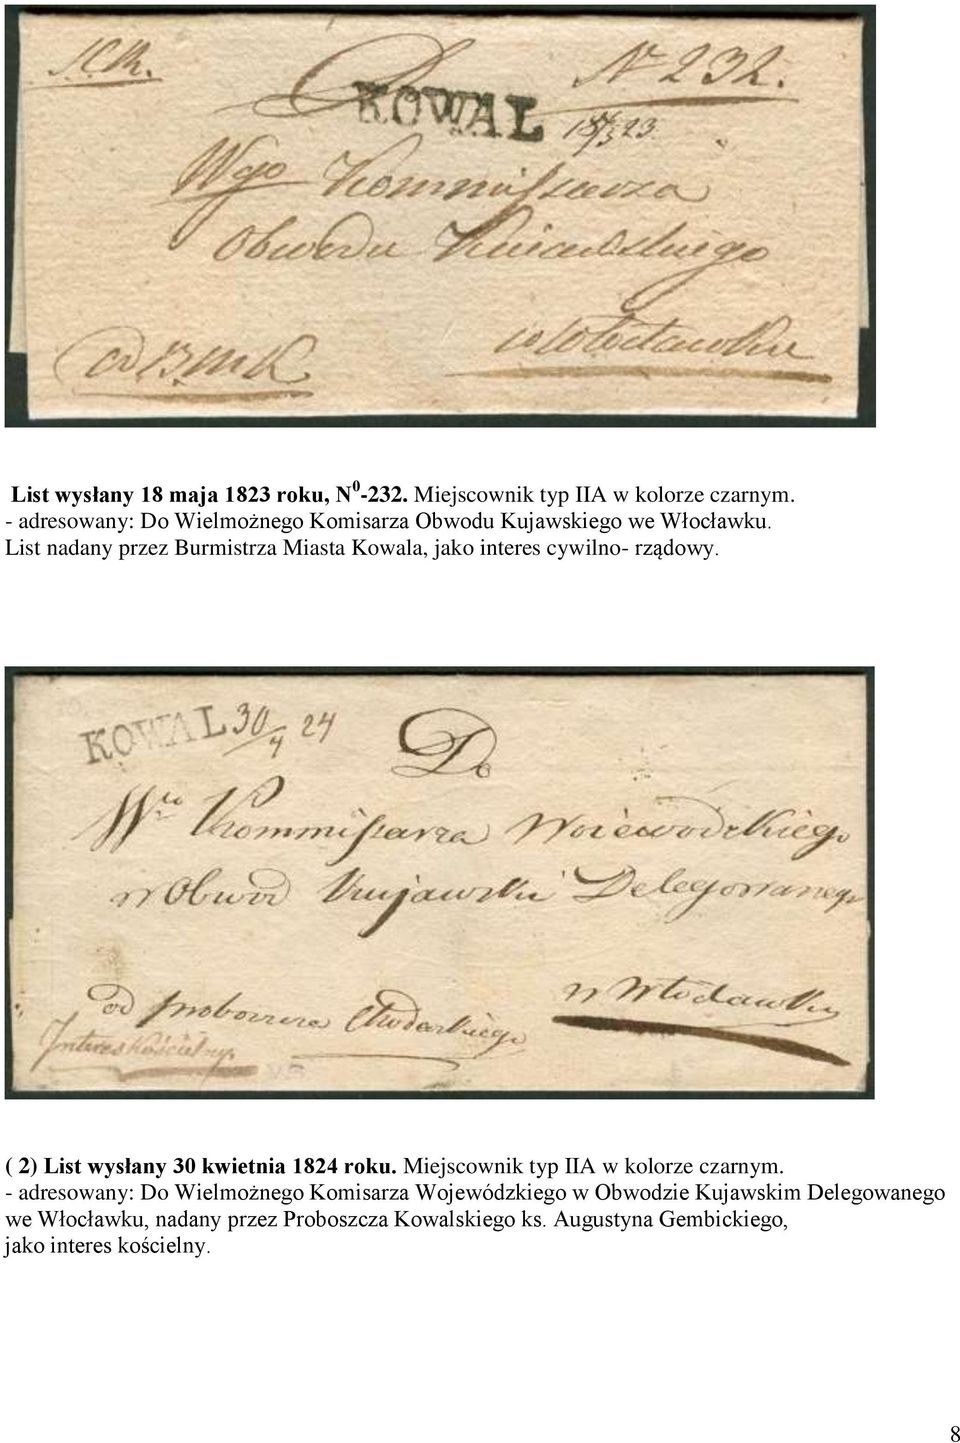 N 232.
KOWAL
Wgo Kommissarza
Obwodu Kuiawskiego
w Włocławku
od BMK.
List wysłany 18 maja 1823 roku, N⁰-232. Miejscownik typ IIA w kolorze czarnym.
- adresowany: Do Wielmożnego Komisarza Obwodu Kujawskiego we Włocławku.
List nadany przez Burmistrza Miasta Kowala, jako interes cywilno- rządowy.
KOWAL 30/4 24
Do
Wo Kommissarza Woiewodzkiego
w Obwód Kujawski Delegowanego
w Włocławku
od proboszcza
Interes kościelny.
( 2) List wysłany 30 kwietnia 1824 roku. Miejscownik typ IIA w kolorze czarnym.
- adresowany: Do Wielmożnego Komisarza Wojewódzkiego w Obwodzie Kujawskim Delegowanego
we Włocławku, nadany przez Proboszcza Kowalskiego ks. Augustyna Gembickiego,
jako interes kościelny.
8